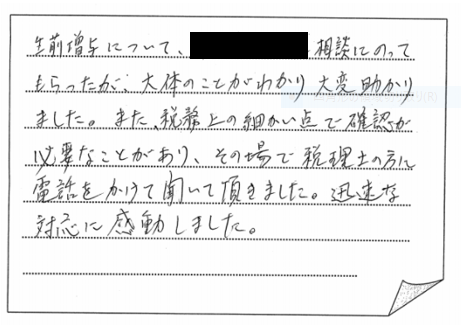 生前増与について、相談にのって
もらったが、大体のことがわかり大変助かり
ました。また、税務上の細かい点で確認が
必要なことがあり、その場で税理士の方に
電話をかけて聞いて頂きました。迅速な
対応に感動しました。